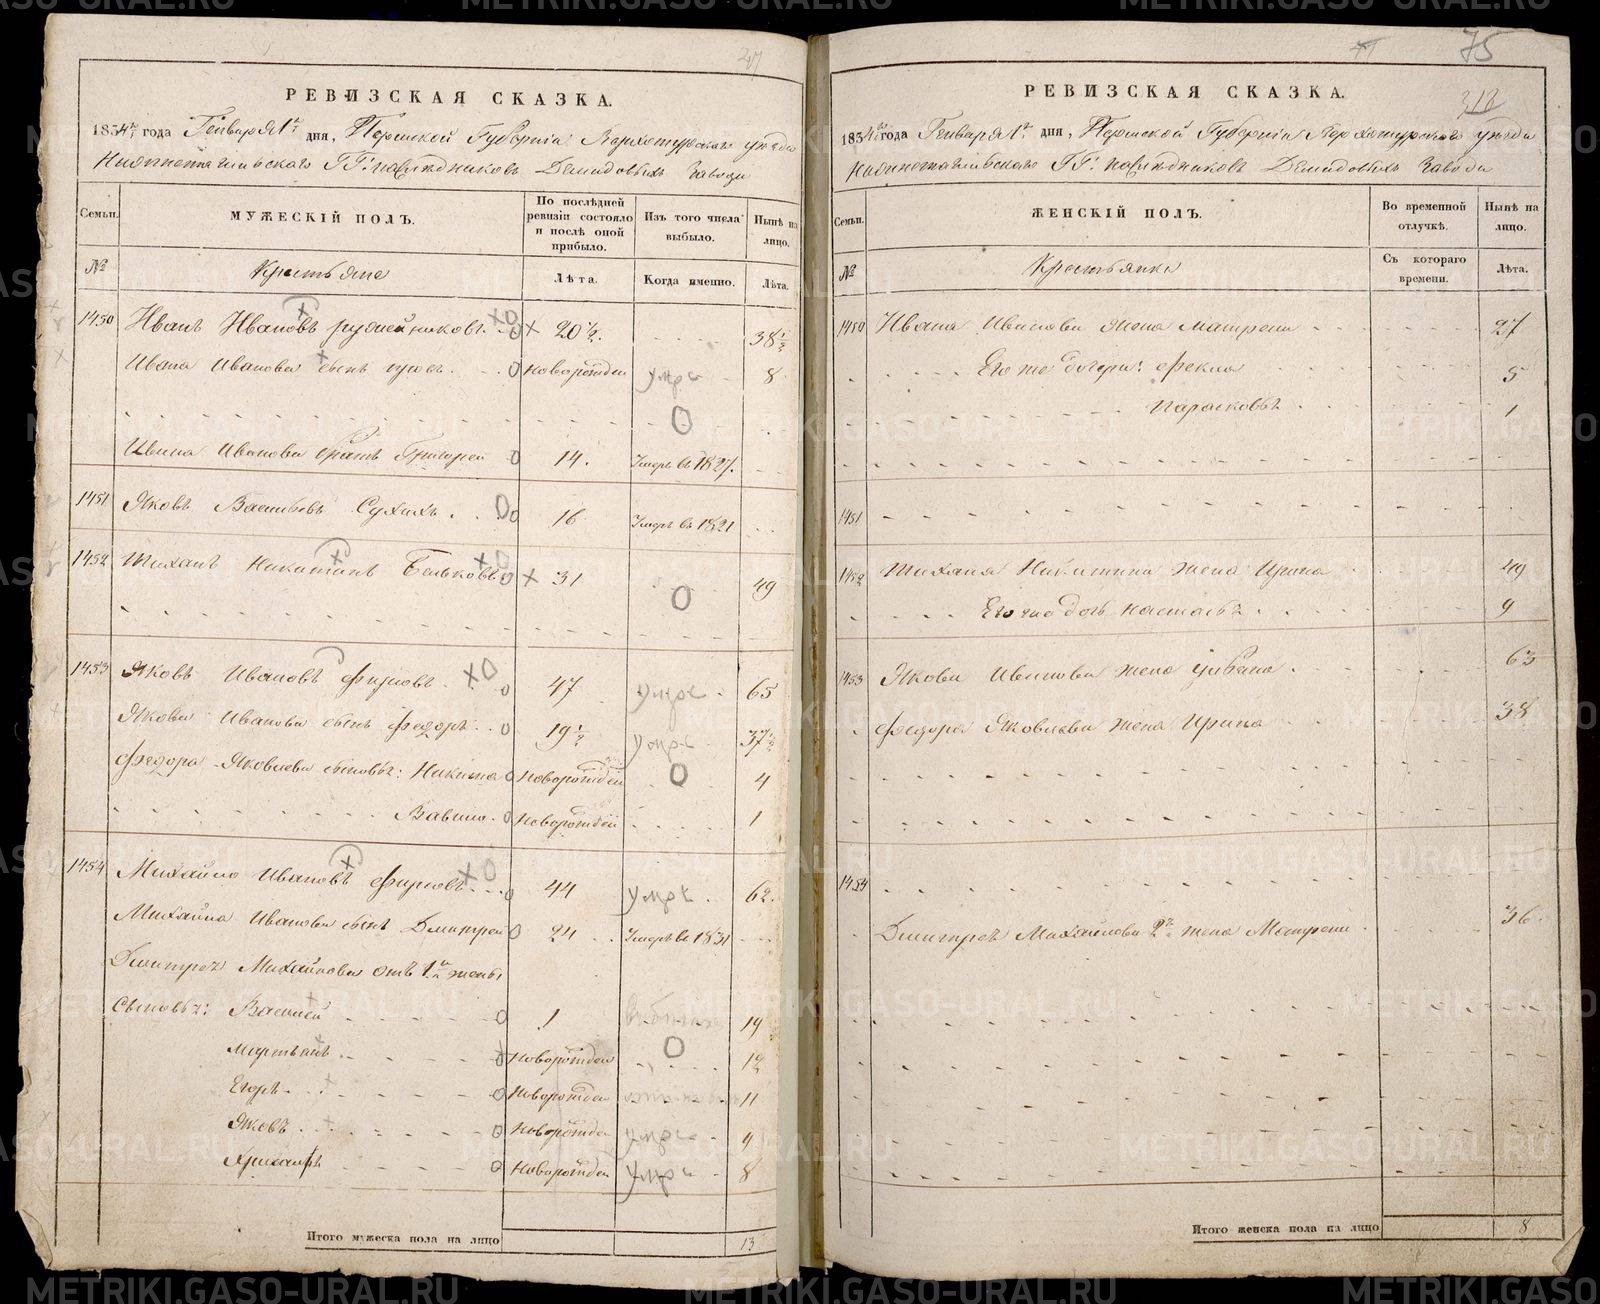 75
318
РЕВИЗСКАЯ СКАЗКА.
1834го года Генваря 1го дня, Пермской Губернiи Верхотурского уезда
Нижнетагильскаго ГГ: наследниковъ Демидовыхъ Завода
Семьи.
МУЖЕСКІЙ ПОЛЪ.
По послѣдней ревизіи состояло и послѣ оной прибыло.
Изъ того числа выбыло.
Нынѣ на лицо.
№
Крестьяне
Лѣта.
Когда именно.
Лѣта.
1450 Иванъ Ивановъ 20½. 38½
Ивана Иванова сынъ новорожден умре 8
Ивана Иванова братъ Григорей 14. Умеръ въ 1827.
1451 Яковъ Васильевъ Сухихъ 16 Умеръ въ 1821
1452 Тиханъ Никитинъ Бѣльковъ 31 0 49
1453 Яковъ Ивановъ Фирсовъ 47 умре 65
Якова Иванова сынъ Федоръ 19½ умре 37½
Федора Яковлева сыновья: Никита Новорожден 0 4
Вавило Новорожден 1
1454 Михайло Ивановъ Фирсовъ 44 умре 62.
Михайла Иванова сынъ Дмитрей 24 Умеръ въ 1831
Дмитрея Михайлова отъ 1й жены
Сыновья: Василей 1 19
Мартьянъ Новорожден 0 12
Егоръ Новорожден 11
Яковъ Новорожден умре 9
Новорожден умре 8
Итого мужеска пола на лицо 13
РЕВИЗСКАЯ СКАЗКА.
1834го года Генваря 1го дня, Пермской Губернiи Верхотурского уезда
Нижнетагильскаго ГГ: наследниковъ Демидовыхъ Завода
Семьи.
ЖЕНСКІЙ ПОЛЪ.
Во временной отлучкѣ.
Нынѣ на лицо.
№
Крестьянки
Съ котораго времени.
Лѣта.
1450 Ивана Иванова жена Матрена 27
Его же дочери: Фекла 5
Парасковья 1
1451
1452 Тихана Никитина жена Ирина 49
Его же дочь Настасья 9
1453 Якова Иванова жена Ульяна 63
Федора Яковлева жена Ирина 38
1454
Дмитрея Михайлова 2я жена Матрена 36
Итого женска пола на лицо 8
METRIKI.GASO-URAL.RU